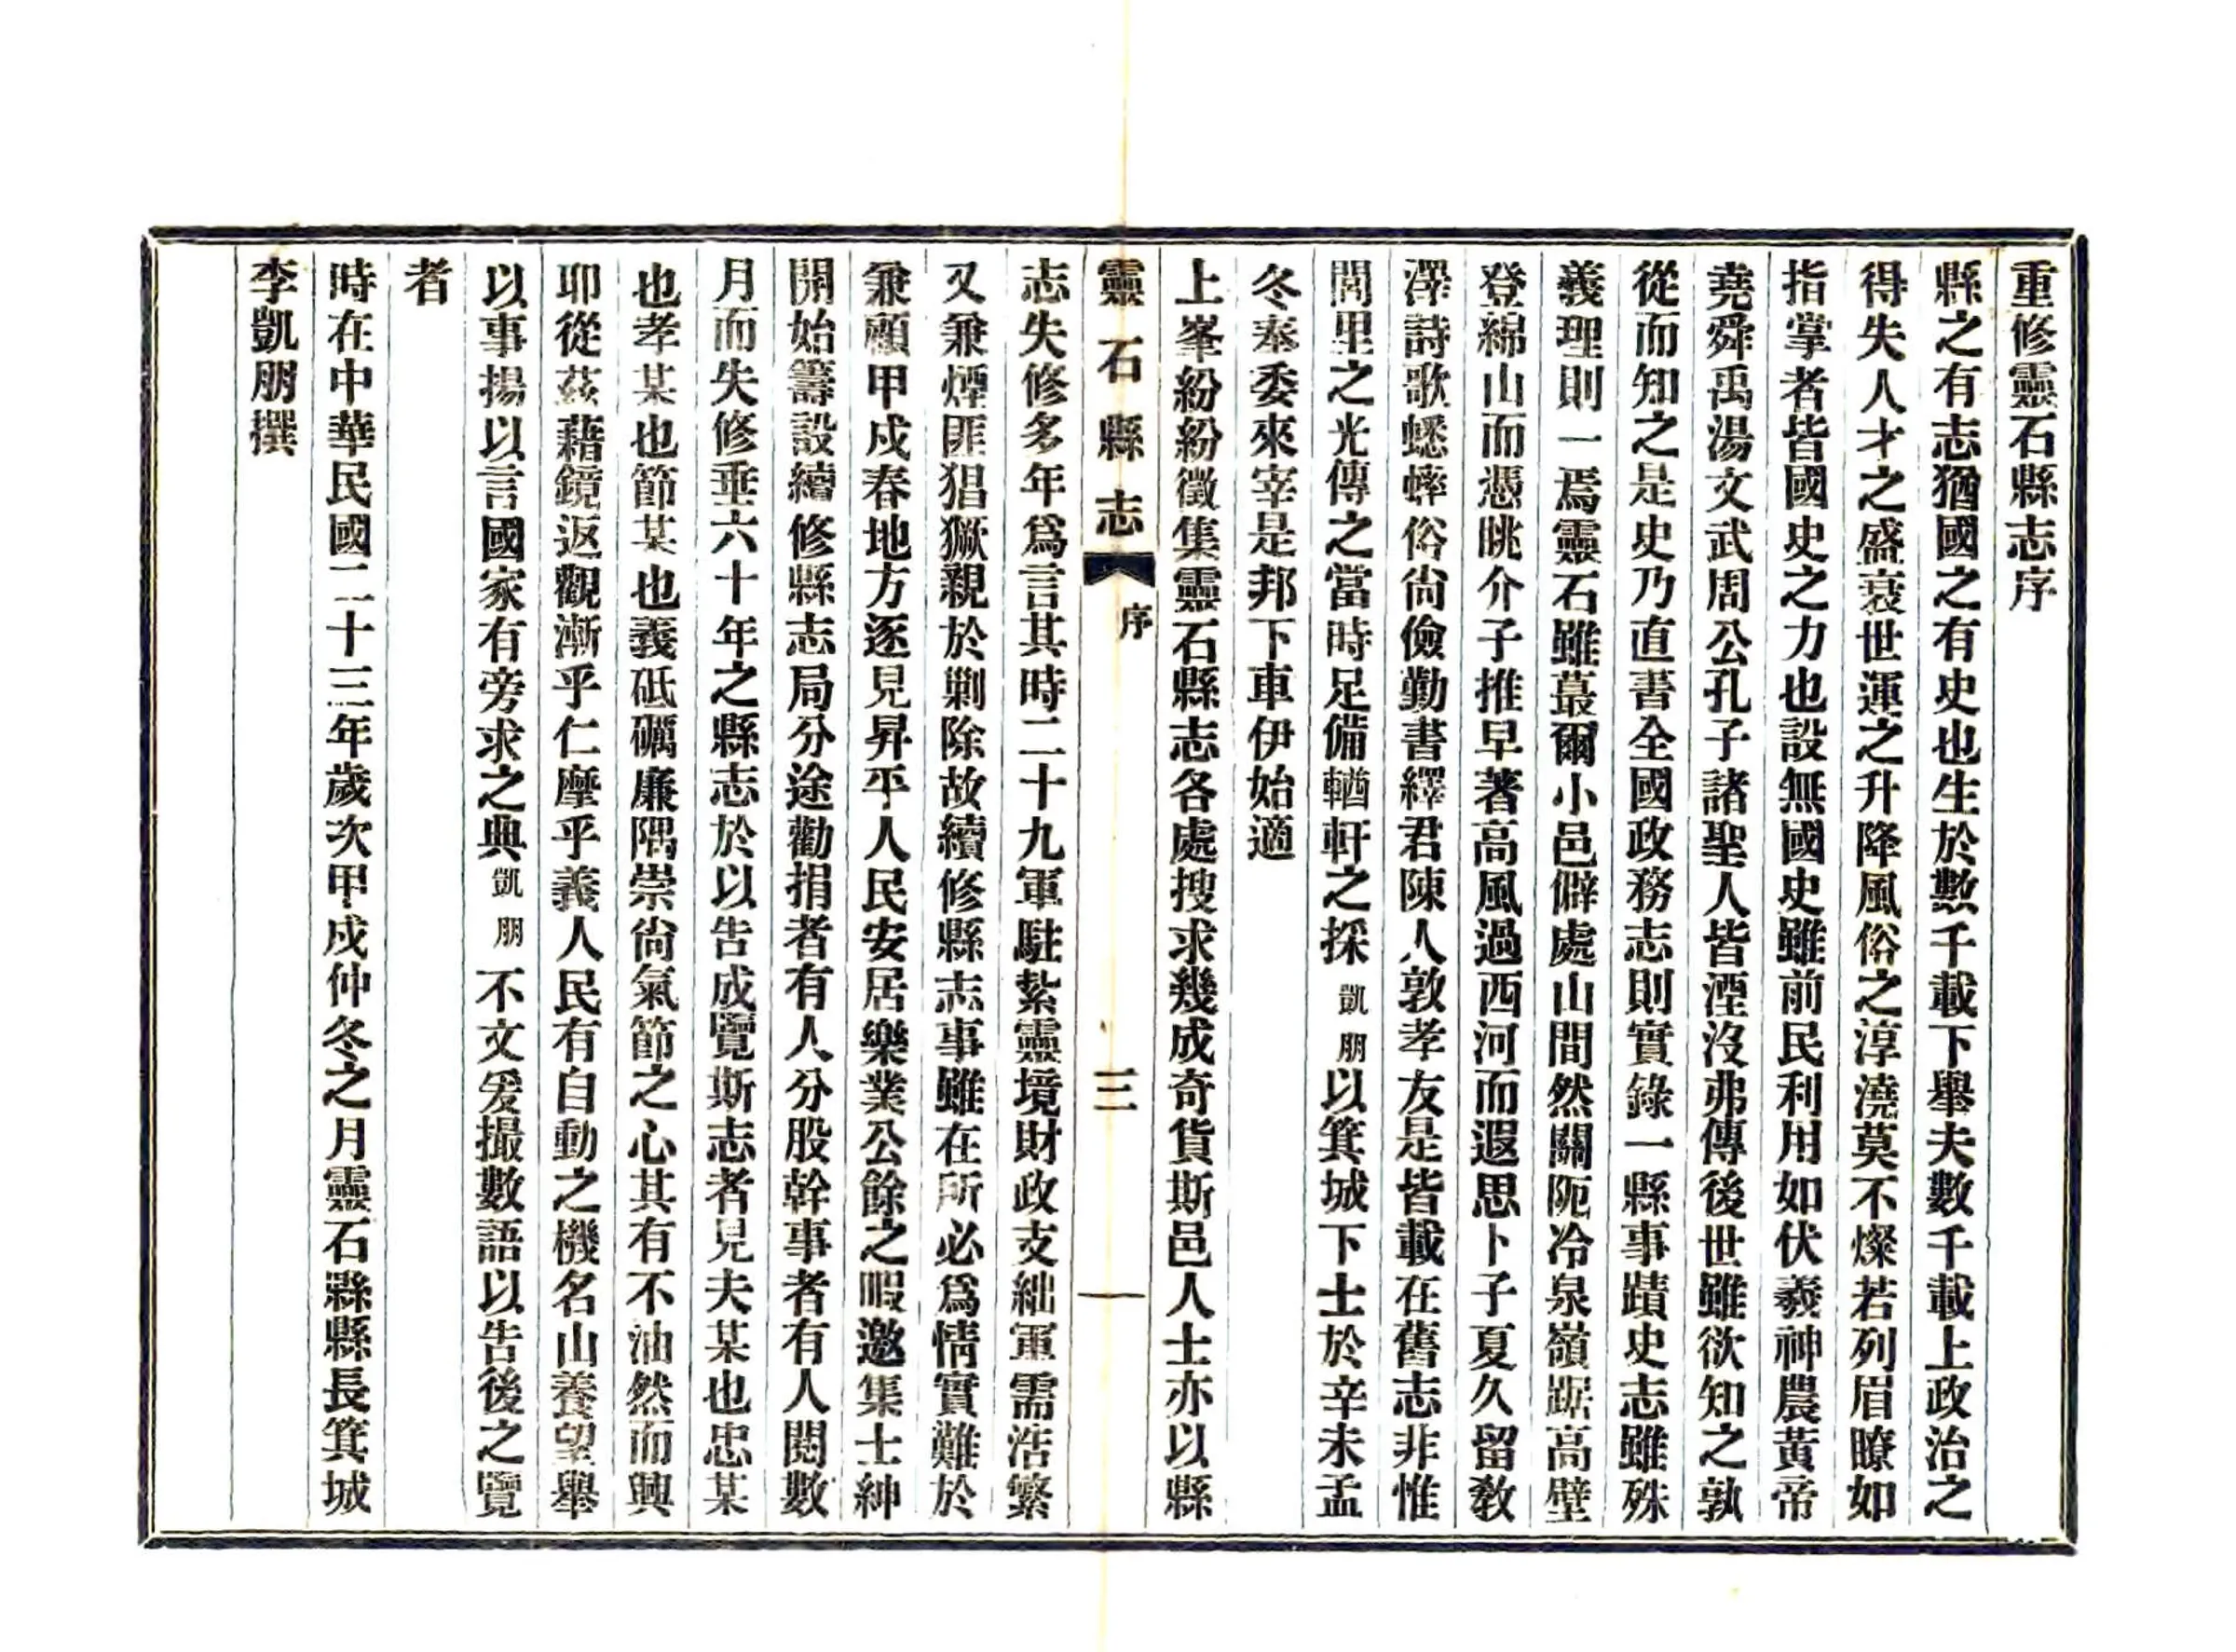 重修靈石縣志序
縣之有志猶國之有史也生於數千載下舉夫數千載上政治之
得失人才之盛衰世運之升降風俗之淳澆莫不燦若列眉瞭如
指掌者皆國史之力也設無國史雖前民利用如伏羲神農黃帝
堯舜禹湯文武周公孔子諸聖人皆湮沒弗傳後世雖欲知之孰
從而知之是史乃直書全國政務志則實錄一縣事蹟史志雖殊
義理則一焉靈石雖蕞爾小邑僻處山間然關阨冷泉嶺踞高壁
登綿山而憑眺介子推早著高風過西河而遐思卜子夏久留教
澤詩歌蟋蟀俗尙儉勤書繹君陳人敦孝友是皆載在舊志非惟
閭里之光傳之當時足備輶軒之採凱朋以箕城下士於辛未孟
冬奉委來宰是邦下車伊始適
上峯紛紛徵集靈石縣志各處搜求幾成奇貨斯邑人士亦以縣
靈石縣志 序 三
志失修多年爲言其時二十九軍駐紮靈境財政支絀軍需浩繁
又兼煙匪猖獗親於剿除故續修縣志事雖在所必爲情實難於
兼顧甲戍春地方逐見昇平人民安居樂業公餘之暇邀集士紳
開始籌設續修縣志局分途勸捐者有人分股幹事者有人閱數
月而失修垂六十年之縣志於以告成覽斯志者見夫某也忠某
也孝某也節某也義砥礪廉隅崇尙氣節之心其有不油然而興
耶從茲藉鏡返觀漸乎仁摩乎義人民有自動之機名山養望舉
以事揚以言國家有旁求之典凱朋不文爰撮數語以告後之覽
者
時在中華民國二十三年歲次甲戍仲冬之月靈石縣縣長箕城
李凱朋撰